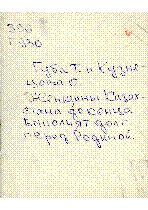 330
Губа Т. и Кузне-
цова С.
Женщины Казах-
стана до конца
выполнят долг
перед Родиной.